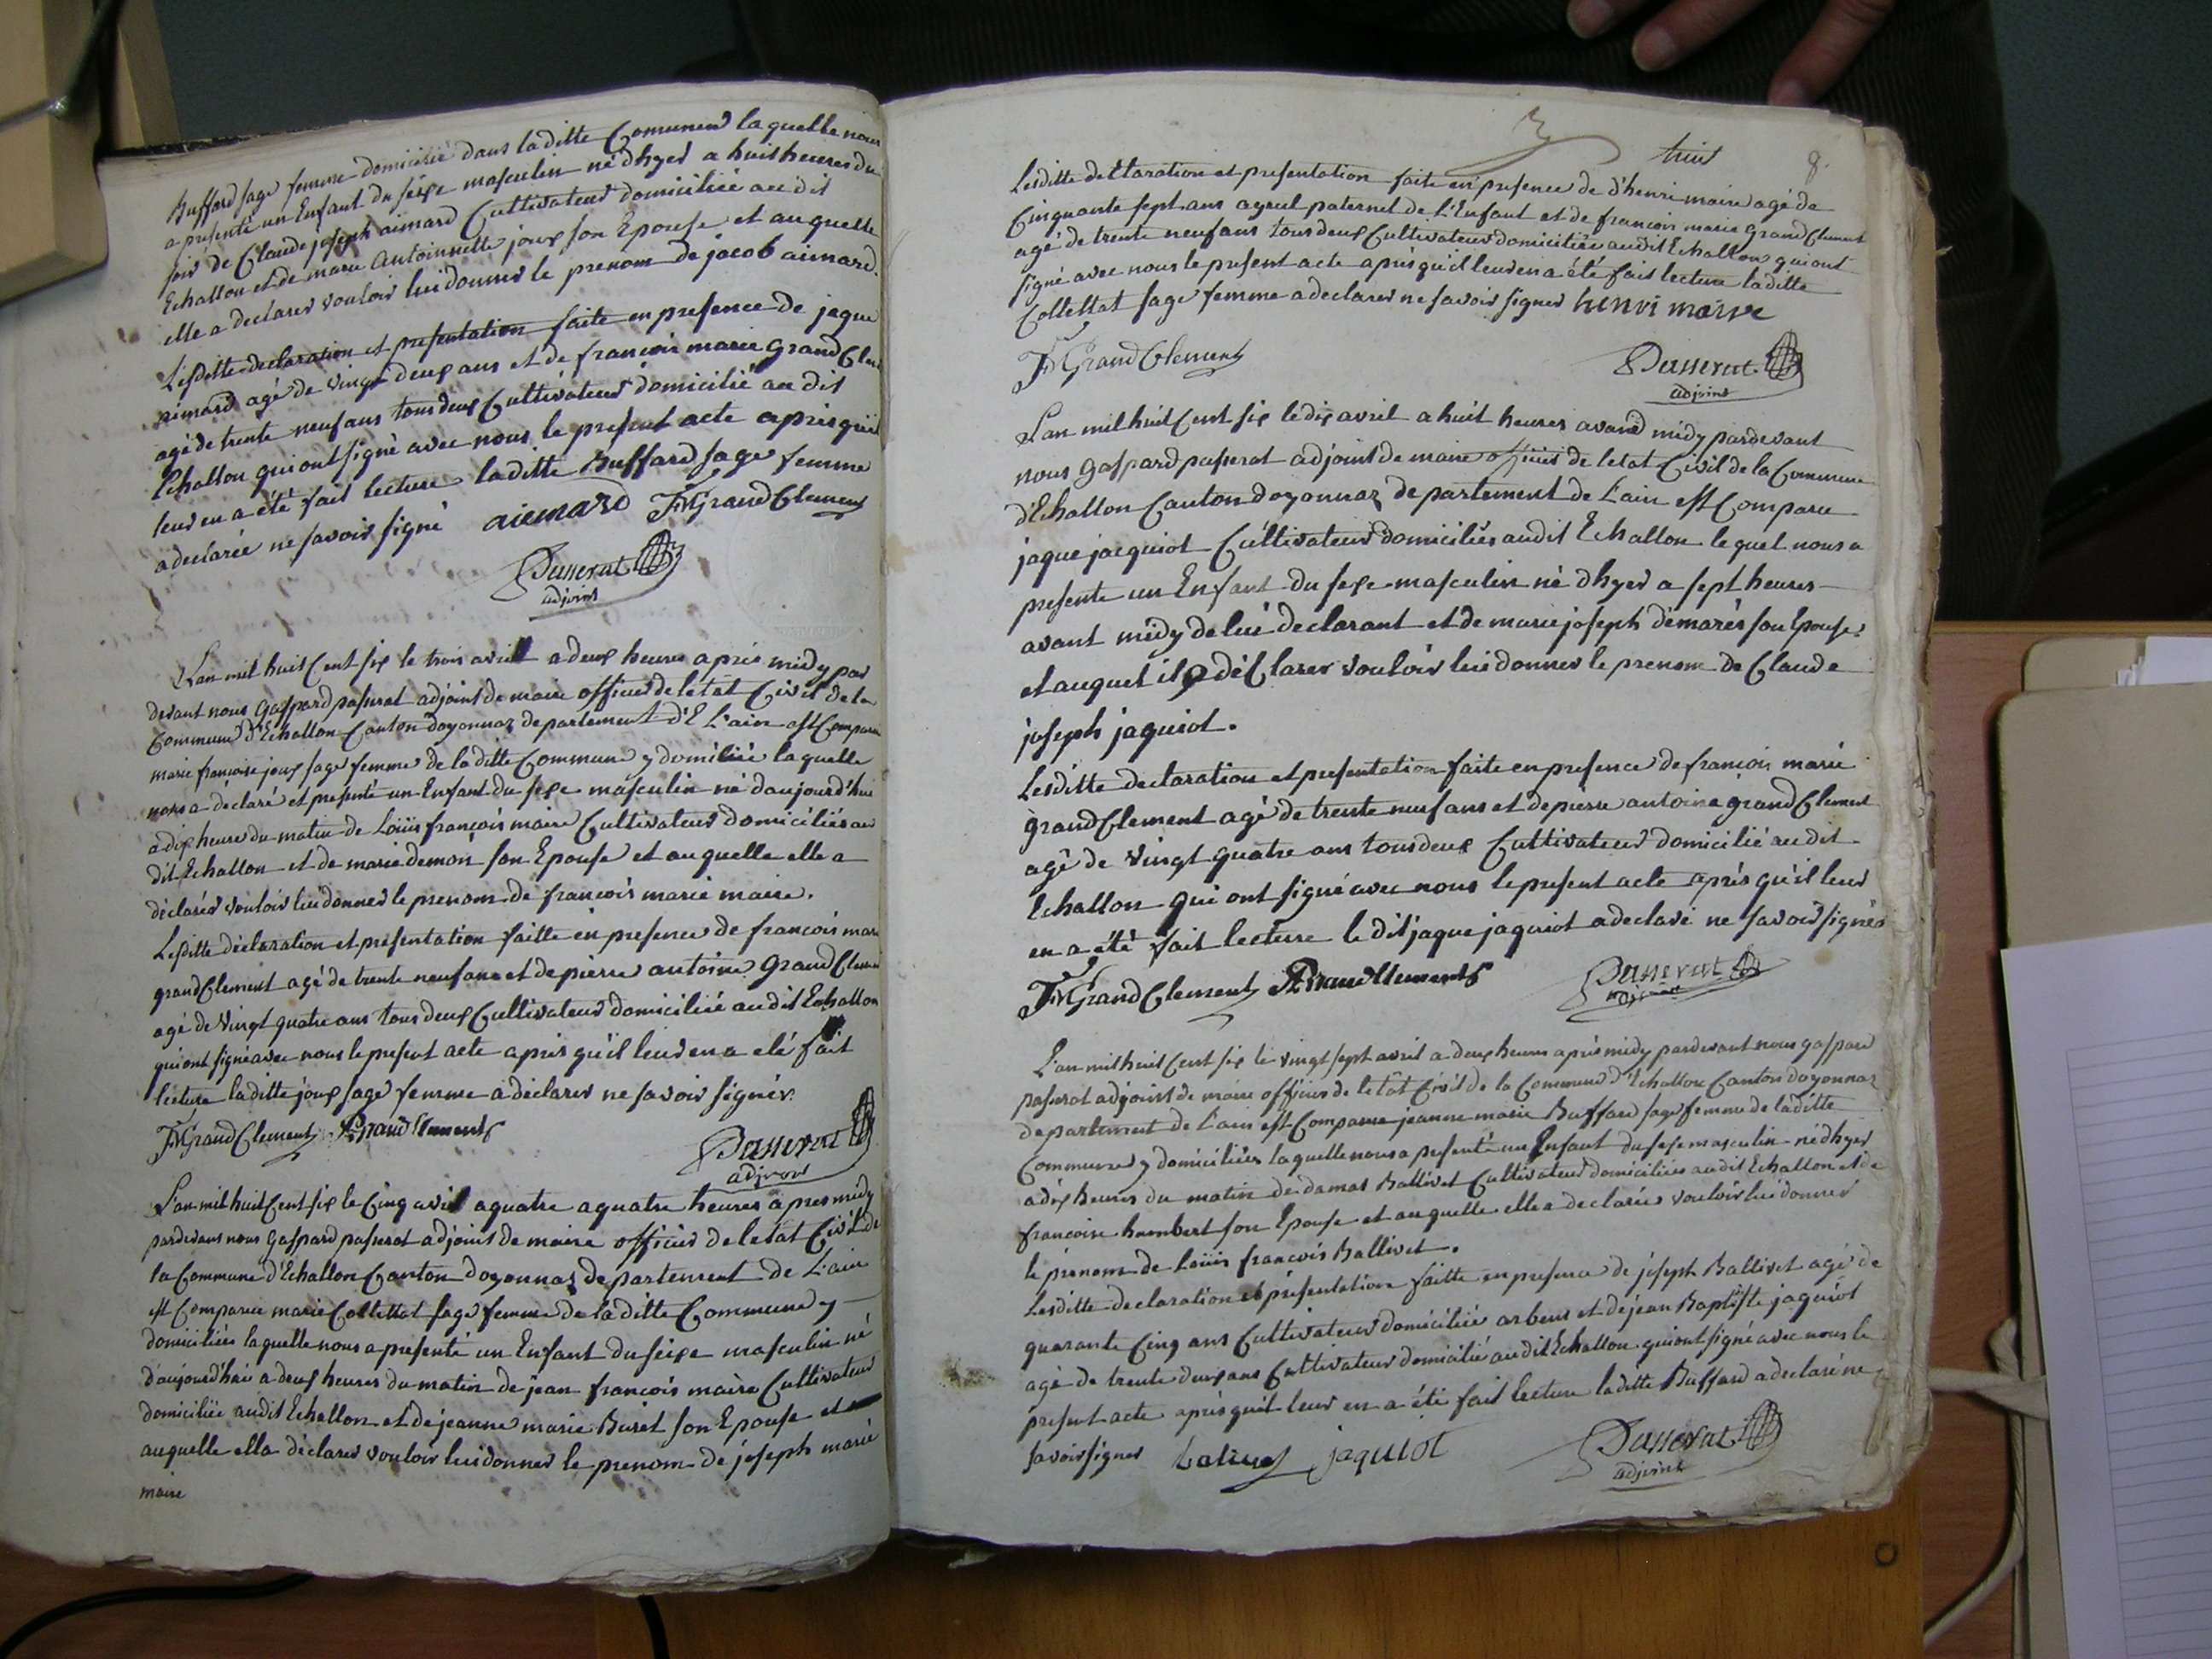 Buffard sage femme domicilié dans laditte Comune laquelle nous
a presenté un Enfant du sexe masculin né d'hyer a huit heures du
soir de Claude joseph aimard Cultivateur domicilié au dit
Echallon et de marie Antoinnette joux son Epouse et auquelle
elle a declarer vouloir lui donner le prenom de jacob aimard.
Lesditte declaration et presentation faite en presence de jaque
aimard agé de vingt deux ans et de françois marie Grand Clem
agé de trente neuf ans tous deux Cultivateur domicilié au dit
Echallon qui ont signé avec nous le present acte apres quil
leur en a été fait lecture laditte Buffard sage femme
a declarée ne savoir signé aiemard FMGrandClement
Passerat
adjoint
L'an mil huit Cent six le trois avril a deux heures après midy par
devant nous Gaspard passerat adjoint de maire officier de letat Civil de la
Commune d'Echallon Canton doyonnaz departement d'E L'ain est Comparu
marie françoise joux sage femme de laditte Commune y domiciliée laquelle
nous a déclaré et presenté un Enfant du sexe masculin né daujourd'hui
a dix heure du matin de Loüis françois maire Cultivateur domiciliés au
dit Echallon et de marie demon son Epouse et auquelle elle a
déclarér vouloir lui donner le prenom de françois marie maire.
Lesditte déclaration et présentation faitte en presence de francois mari
grandClement agé de trente neuf ans et de pierre antoine GrandClement
agé de vingt quatre ans tous deux Cultivateur domicilié audit Echallon
qui ont signé avec nous le present acte apres qu'il leur en a été fait
lecture laditte joux sage femme a declarer ne savoir signér.
FMGrandClement PAGrandClement
Passerat
adjoint
L'an mil huit Cent six le Cinq avril a quatre a quatre heures apres midy
pardevant nous Gaspard passerat adjoint de maire officier de letat Civil de
la Commune d'Echallon Canton doyonnaz departement de L'ain
est Comparue marie Collettat sage femme de laditte Commune y
domiciliées laquelle nous a presenté un Enfant du seixe masculin né
d'aujourd'hui a deux heures du matin de jean françois maire Cultivateur
domiciliée audit Echallon et de jeanne marie Buret son Epouse et
auquelle ella déclarer vouloir lui donner le prenom de joseph marie
maire
huit 8.
Lesditte declaration et presentation faite en presence de d'henri maire agé de
Cinquante sept ans ayeul paternel de L'Enfant et de francois marie GrandClement
agé de trente neuf ans tous deux Cultivateur domiciliée audit Echallon qui ont
signé avec nous le present acte apres qu'il leur en a été fait lecture laditte
Collettat sage femme a declarer ne savoir signer henri maire
FMGrandClement
Passerat
adjoint
L'an mil huit Cent six le dix avril a huit heures avand midy pardevant
nous Gaspard passerat adjoint de maire officier de letat Civil de la Commune
d'Echallon Canton doyonnaz departement de L'ain est Comparu
jaque jacquiot Cultivateur domiciliés audit Echallon lequel nous a
presente un Enfant du sexe masculin né dhyer a sept heures
avant midy de lui declarant et de marie joseph démarés son Epouse
et auquel il a déClarer vouloir lui donner le prenom de Claude
joseph jaquiot.
Lesditte declaration et presentation faite en presence de françois marie
grandClement agé de trente neuf ans et de pierre antoine grandClement
agé de vingt quatre ans tous deux Cultivateur domicilié au dit
Echallon qui ont signé avec nous le present acte après qu'il leur
en a été fait lecture le dit jaque jaquiot a declaré ne savoir signér
FMGrandClement PAGrandClement Passerat
adjoint
L'an mil huit Cent six le vingt sept avril a deux heures après midy pardevant nous gaspard
passerat adjoint de maire officier de letat Civil de la Commune d'Echallon Canton doyonnaz
departement de L'ain est Comparue jeanne marie Buffard sage femme de laditte
Commune y domiciliées laquelle nous a presenté un Enfant du sexe masculin né dhyer
a dix heures du matin de damas Ballivet Cultivateur domiciliées audit Echallon et de
francoise humbert son Epouse et auquelle elle a declarée vouloir lui donner
le prénom de Loüis francois Ballivet.
Lesditte declaration et présentation faitte en presence de joseph Ballivet agé de
quarante Cinq ans Cultivateur domicilié arbent et de jean Baptiste jaquiot
agé de trente deux ans Cultivateur domicilié audit Echallon qui ont signé avec nous le
present acte après quil leur en a été fait lecture laditte Buffard a declaré ne
savoir signer Balivet jaquiot
Passerat
adjoint